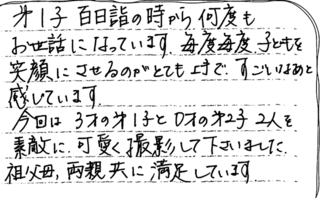 第1子 百日詣の時から、何度も
お世話になっています。毎度毎度 子どもを
笑顔にさせるのがとても上手で、すごいなあと
感じています。
今回は 3才の第1子と 0才の第2子 2人を
素敵に、可愛く撮影して下さいました。
祖父母、両親共に満足しています。